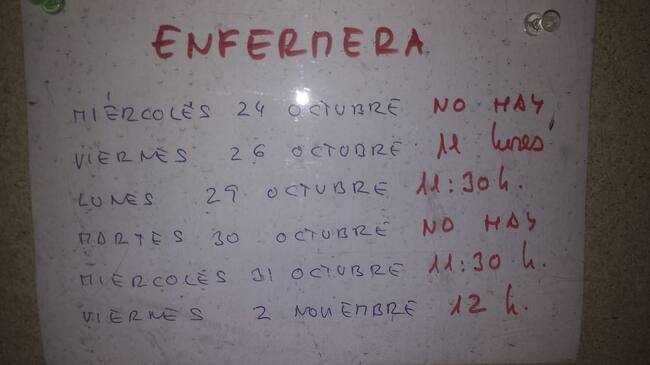 ENFERMERA
MIÉRCOLES 24 OCTUBRE NO HAY
VIERNES 26 OCTUBRE 11 horas
LUNES 29 OCTUBRE 11:30 h.
MARTES 30 OCTUBRE NO HAY
MIERCOLES 31 OCTUBRE 11:30 h.
VIERNES 2 NOVIEMBRE 12 h.